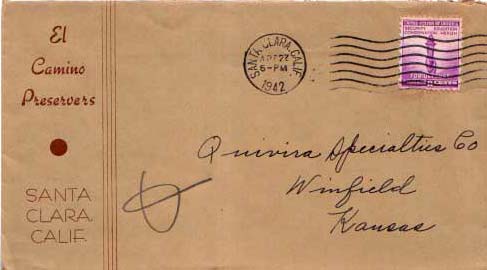 El
Camino
Preservers
SANTA
CLARA,
CALIF.
SANTA CLARA, CALIF.
5-PM
1942
UNITED STATES OF AMERICA
SECURITY EDUCATION
CONSERVATION HEALTH
FOR DEFENSE
CENTS
Quivira Specialties Co
Winfield
Kansas